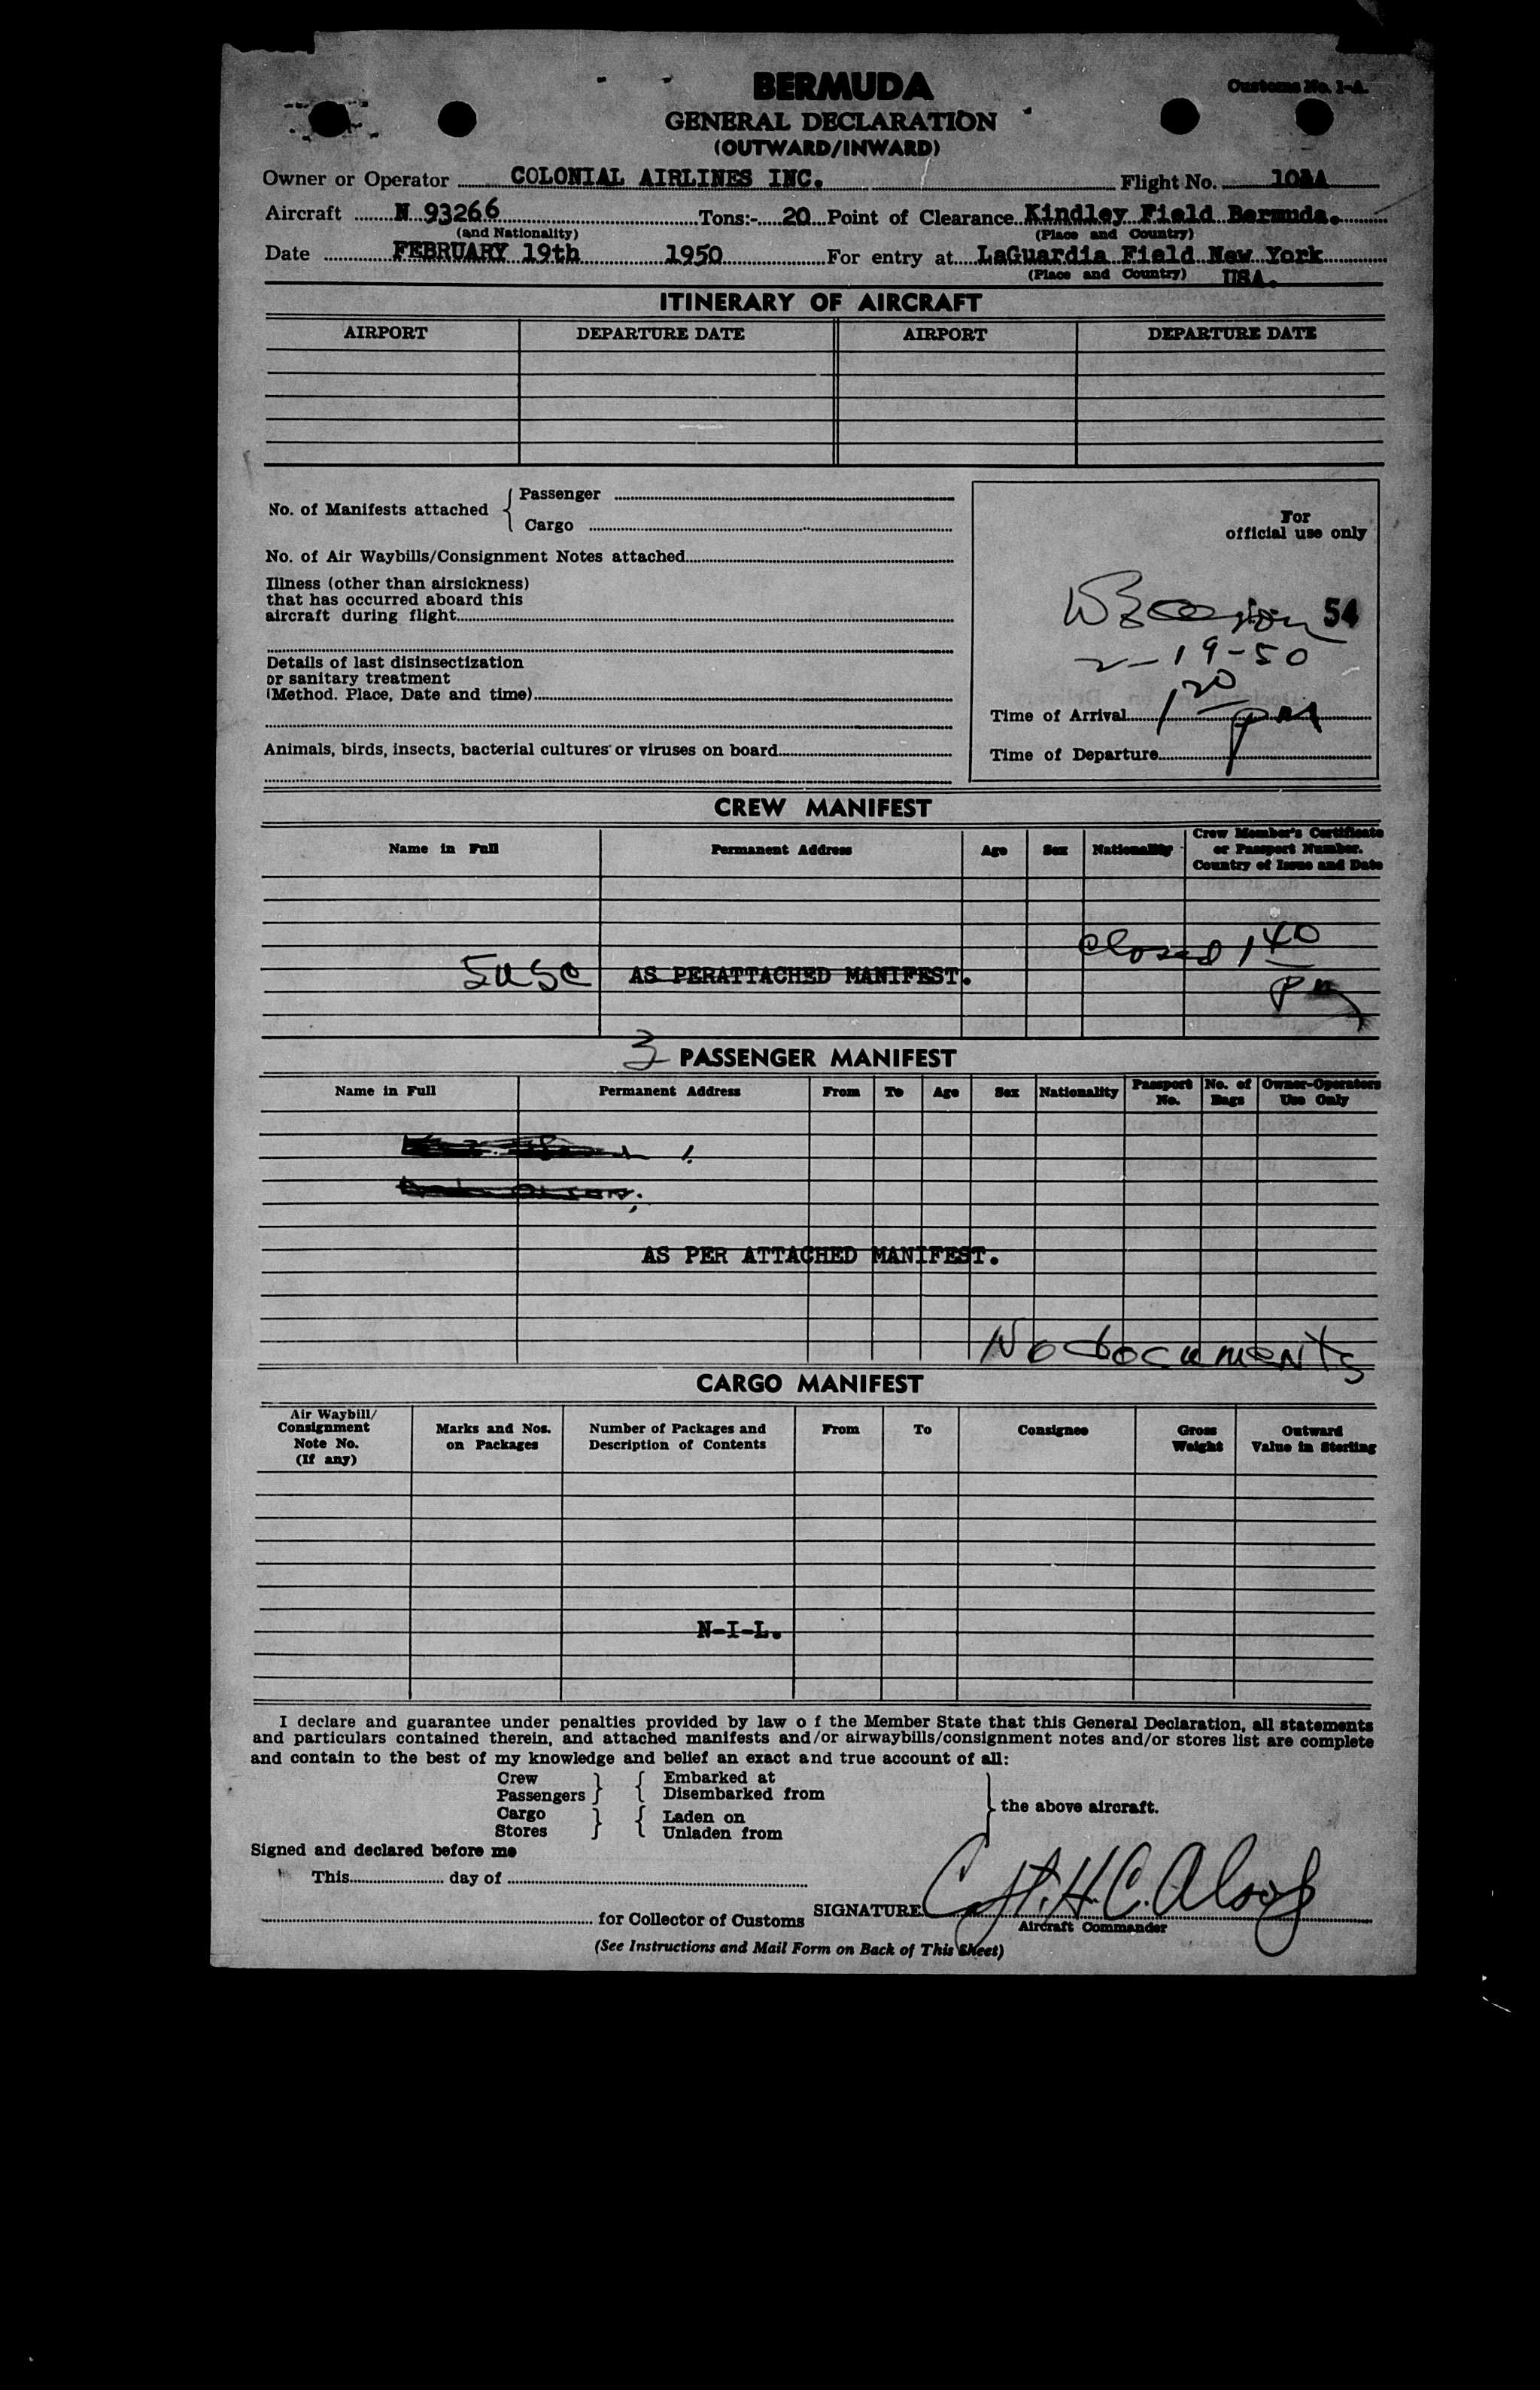 BERMUDA
Customs No. 1-A.
GENERAL DECLARATION
(OUTWARD/INWARD)
Owner or Operator COLONIAL AIRLINES INC. Flight No.
Aircraft N 93266 Tons:- 20 Point of Clearance Kindley Field Bermuda.
(and Nationality) (Place and Country)
Date FEBRUARY 19th 1950 For entry at LaGuardia Field New York
(Place and Country) USA.
ITINERARY OF AIRCRAFT
AIRPORT DEPARTURE DATE AIRPORT DEPARTURE DATE
No. of Manifests attached { Passenger
Cargo
No. of Air Waybills/Consignment Notes attached
Illness (other than airsickness)
that has occurred aboard this
aircraft during flight
Details of last disinsectization
or sanitary treatment
(Method. Place, Date and time)
Animals, birds, insects, bacterial cultures or viruses on board
For
official use only
54
2-19-50
Time of Arrival 1 20 PM
Time of Departure
CREW MANIFEST
Name in Full Permanent Address Age Sex Nationality Crew Member's Certificate or Passport Number. Country of Issue and Date
Closed 1 40
5 USC AS PERATTACHED MANIFEST.
PM
3 PASSENGER MANIFEST
Name in Full Permanent Address From To Age Sex Nationality Passport No. No. of Bags Owner-Operators Use Only
AS PER ATTACHED MANIFEST.
No documents
CARGO MANIFEST
Air Waybill/ Consignment Note No. (If any) Marks and Nos. on Packages Number of Packages and Description of Contents From To Consignee Gross Weight Outward Value in Sterling
N-I-L.
I declare and guarantee under penalties provided by law o f the Member State that this General Declaration, all statements
and particulars contained therein, and attached manifests and/or airwaybills/consignment notes and/or stores list are complete
and contain to the best of my knowledge and belief an exact and true account of all:
Crew } { Embarked at
Passengers Disembarked from
} the above aircraft.
Cargo } { Laden on
Stores Unladen from
Signed and declared before me
This day of
for Collector of Customs SIGNATURE Cpt. H.C. Alsop
Aircraft Commander
(See Instructions and Mail Form on Back of This Sheet)